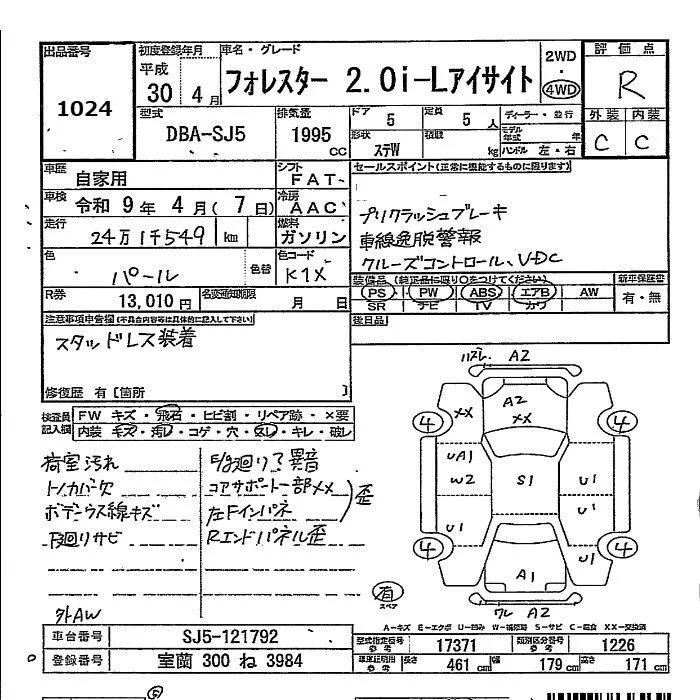 出品番号
1024
初度登録年月
平成
30 4月
車名・グレード
フォレスター 2.0i-Lアイサイト
2WD
・
4WD
評価点
R
型式
DBA-SJ5
排気量
1995
CC
ドア
5
定員
5 人
形状
ステW
積載
kg
ディーラー・並行
モデル年式
年
ハンドル 左・右
外装 内装
C C
車歴
自家用
シフト
FAT
セールスポイント(正常に機能するものに限ります)
プリクラッシュブレーキ
車線逸脱警報
クルーズコントロール、VDC
車検
令和 9年 4月(7日)
冷房
AAC
走行
24万1千549 km
燃料
ガソリン
色
パール
色替
色コード
K1X
装備品(純正品に限り○をつけてください)
PS PW ABS エアB AW
SR ナビ TV カワ
新車保証書
有・無
R券
13,010円
名変通知期限
月 日
後日品
注意事項申告欄(不具合内容等は具体的に記入して下さい)
スタッドレス装着
修復歴 有[箇所 ]
検査員記入欄
FW キズ・飛石・ヒビ割・リペア跡・×要
内装 キズ・汚レ・コゲ・穴・スレ・キレ・破レ
荷室汚れ
トノカバ欠
ボデーウス線キズ
下廻りサビ
外AW
コアサポート一部XX
左Fインパネ
Rエンドパネル歪
歪
ハズレ A2
A2
XX
XX
4 4
UA1
W2
S1
U1
U1
U1
U1
4 4
A1
ワレ A2
有
スペア
A-キズ E-エクボ U-凹み W-補修跡 S-サビ C-腐食 XX-交換済
車台番号
SJ5-121792
登録番号
室蘭 300 ね 3984
型式指定番号
参考
17371
類別区分番号
参考
1226
車庫証明用
参考
長さ
461 cm
幅
179 cm
高さ
171 cm